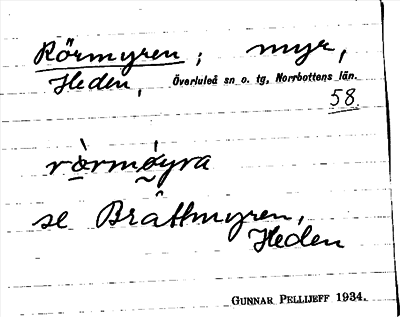 Rörmyren; myr,
Heden, Överluleå sn o. tg, Norrbottens län.
58.
rò̱rmǿ̰yra
se Bråttmyren,
Heden
GUNNAR PELLIJEFF 1934.